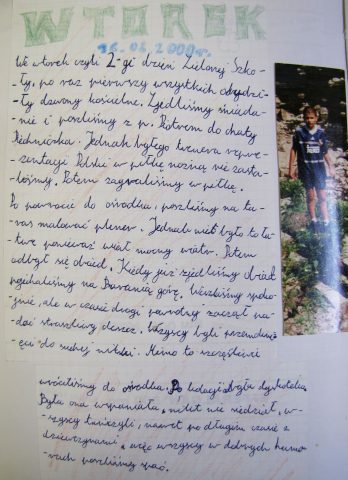 WTOREK
We wtorek czyli 2-gi dzień Zielonej Szko-
-ły, po raz pierwszy wszystkich obudzi-
-ły dzwony kościelne. Zjedliśmy śniada-
-nie i poszliśmy z p. Piotrem do chaty
Piechniczka. Jednak byłego trenera repre-
-zentacji Polski w piłkę nożną nie zasta-
-liśmy. Potem zagraliśmy w piłkę.
Po powrocie do ośrodka, poszliśmy na ta-
-ras malować plener. Jednak nie było to ła-
-twe ponieważ wiał mocny wiatr. Potem
odbył się obiad. Kiedy już zjedliśmy obiad
pojechaliśmy na Baranią górę. Weszliśmy spoko-
-jnie, ale w czasie drogi powrotnej zaczął pa-
-dać straszliwy deszcz. Wszyscy byli przemoknię-
-ęci do suchej nitki. Mimo to szczęśliwie
wróciliśmy do ośrodka. Po kolacji była dyskoteka
Była ona wspaniała, nikt nie siedział, w-
-szyscy tańczyli, nawet po długim czasie z
dziewczynami, więc wszyscy w dobrych humo-
-rach poszliśmy spać.